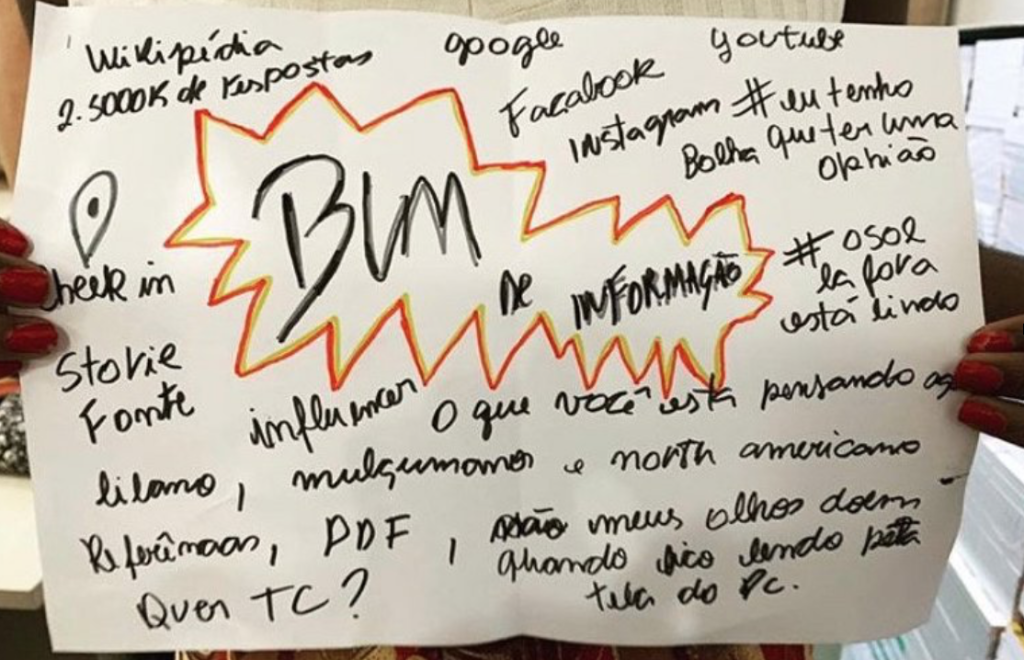 Wikipédia
2.5000K de respostas
google
youtube
Facabook
Instagram #eu tenho
Bolha que ter uma
opinião
BUM
DE INFORMAÇÃO
Check in
#osol
la fora
está lindo
Storie
Fonte
influencer
O que você está pensando
e north americano
Referências, PDF, meus olhos doem
quando fico lendo pela
tela do Pc.
Quer TC?